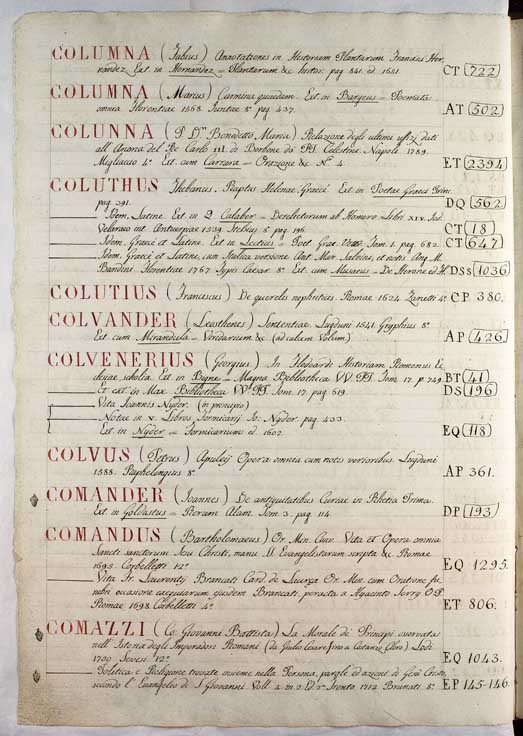 COLUMNA (Fabius) Annotationes in Historiam Plantarum Francisci Her-
nandez Ext. in Hernandez = Plantarum &c histor. pag. 841. ed. 1651. CT 722
COLUMNA (Marius) Carmina quaedam. Ext. in Bargeus = Poemata
omnia Florentiae 1568. Juntae 8° pag. 437. AT 502
COLUNNA (P. Dn. Benedetto Maria) Relazione degli ultimi uffizj dati
all Anima del Re Carlo III. di Borbone da' PP. Celestini. Napoli. 1789.
Migliaccio 4° Est. cum Carrara = Orazione &c N.° 4 ET 2394
COLUTHUS Thebanus. Raptus Helenae. Graecè Ext. in Poetae Graeci Prin.
pag. 291. DQ 562
Idem, Latine. Ext. in Q Calaber = Derelictorum ab Homero Libri XIV. Jod.
Velareo int. Antuerpiae 1539 Stelsius 8° pag. 196. CT 18
Idem. Graecè et Latine. Ext. in Lectius = Poet. Grae. Tom. 1. pag. 682. CT 647
Idem. Graecè et Latine, cum Italica versione Ant. Mar. Salvini, et notis Ang. M.
Bandini. Florentiae 1767 Typis Caesar. 8° Est. cum Musaeus = De Herone et DSs 1036
COLUTIUS (Franciscus) De querelis nephriticis. Romae 1624 Zanetti 4° CP 380.
COLVANDER (Leosthenes) Sententiae Lugduni 1541. Gryphius 8°
Est cum Mirandula = Viridarium &c (ad calcem Volum) AP 426
COLVENERIUS (Georgius) In Flodoardi Historiam Remensis Ec
clesiae, scholia. Ext. in Bigne = Magna Bibliotheca VV. PP. Tom. 17. p. 749. BT 41
Et ext. in Max. Bibliotheca VV. PP. Tom. 17. pag. 619. DS 196
Vita Joannis Nyder. (in principio)
Notae in V. Libros Formicarij Jo. Nyder. pag. 433.
Ext. in Nyder = Formicarium ed. 1602. EQ 118
COLVUS (Petrus) Apuleij Opera omnia cum notis verioribus. Lugduni
1588. Raphelengius 8° AP 361.
COMANDER (Joannes) De antiquitatibus Curiae in Rhetia Prima.
Ext. in Goldastus = Rerum Alam. Tom. 3. pag. 114 DP 193
COMANDUS (Bartholomaeus) Or. Min. Conv. Vita et Opera omnia
Sancti sanctorum Jesu Christi, manu 4 Evangelistarum scripta &c Romae
1698. Corbelletti 12° EQ 1295.
Vita Fr. Laurentij Brancati Card. de Lauraea Or. Min. cum Oratione fu-
nebri occasione exequiarum ejusdem Brancati peracta a Hyacinto Serry O.P.
Romae 1698. Corbelletti 4° ET 806.
COMAZZI (Co. Giovanni Battista) La Morale de' Principi osservata
nell' Istoria degli Imperadori Romani (da Giulio Cesare fino a Catanzo Cloro) Lodi
1700 Sevesi 12° EQ 1043.
Politica e Religione trovate insieme nella Persona, parole ed azioni di Gesù Cristo,
secondo l'Evangelio di S. Giovanni. Voll. 4. in 2. Ed. 2a Trento 1712 Brunati 8° EP 145-146.